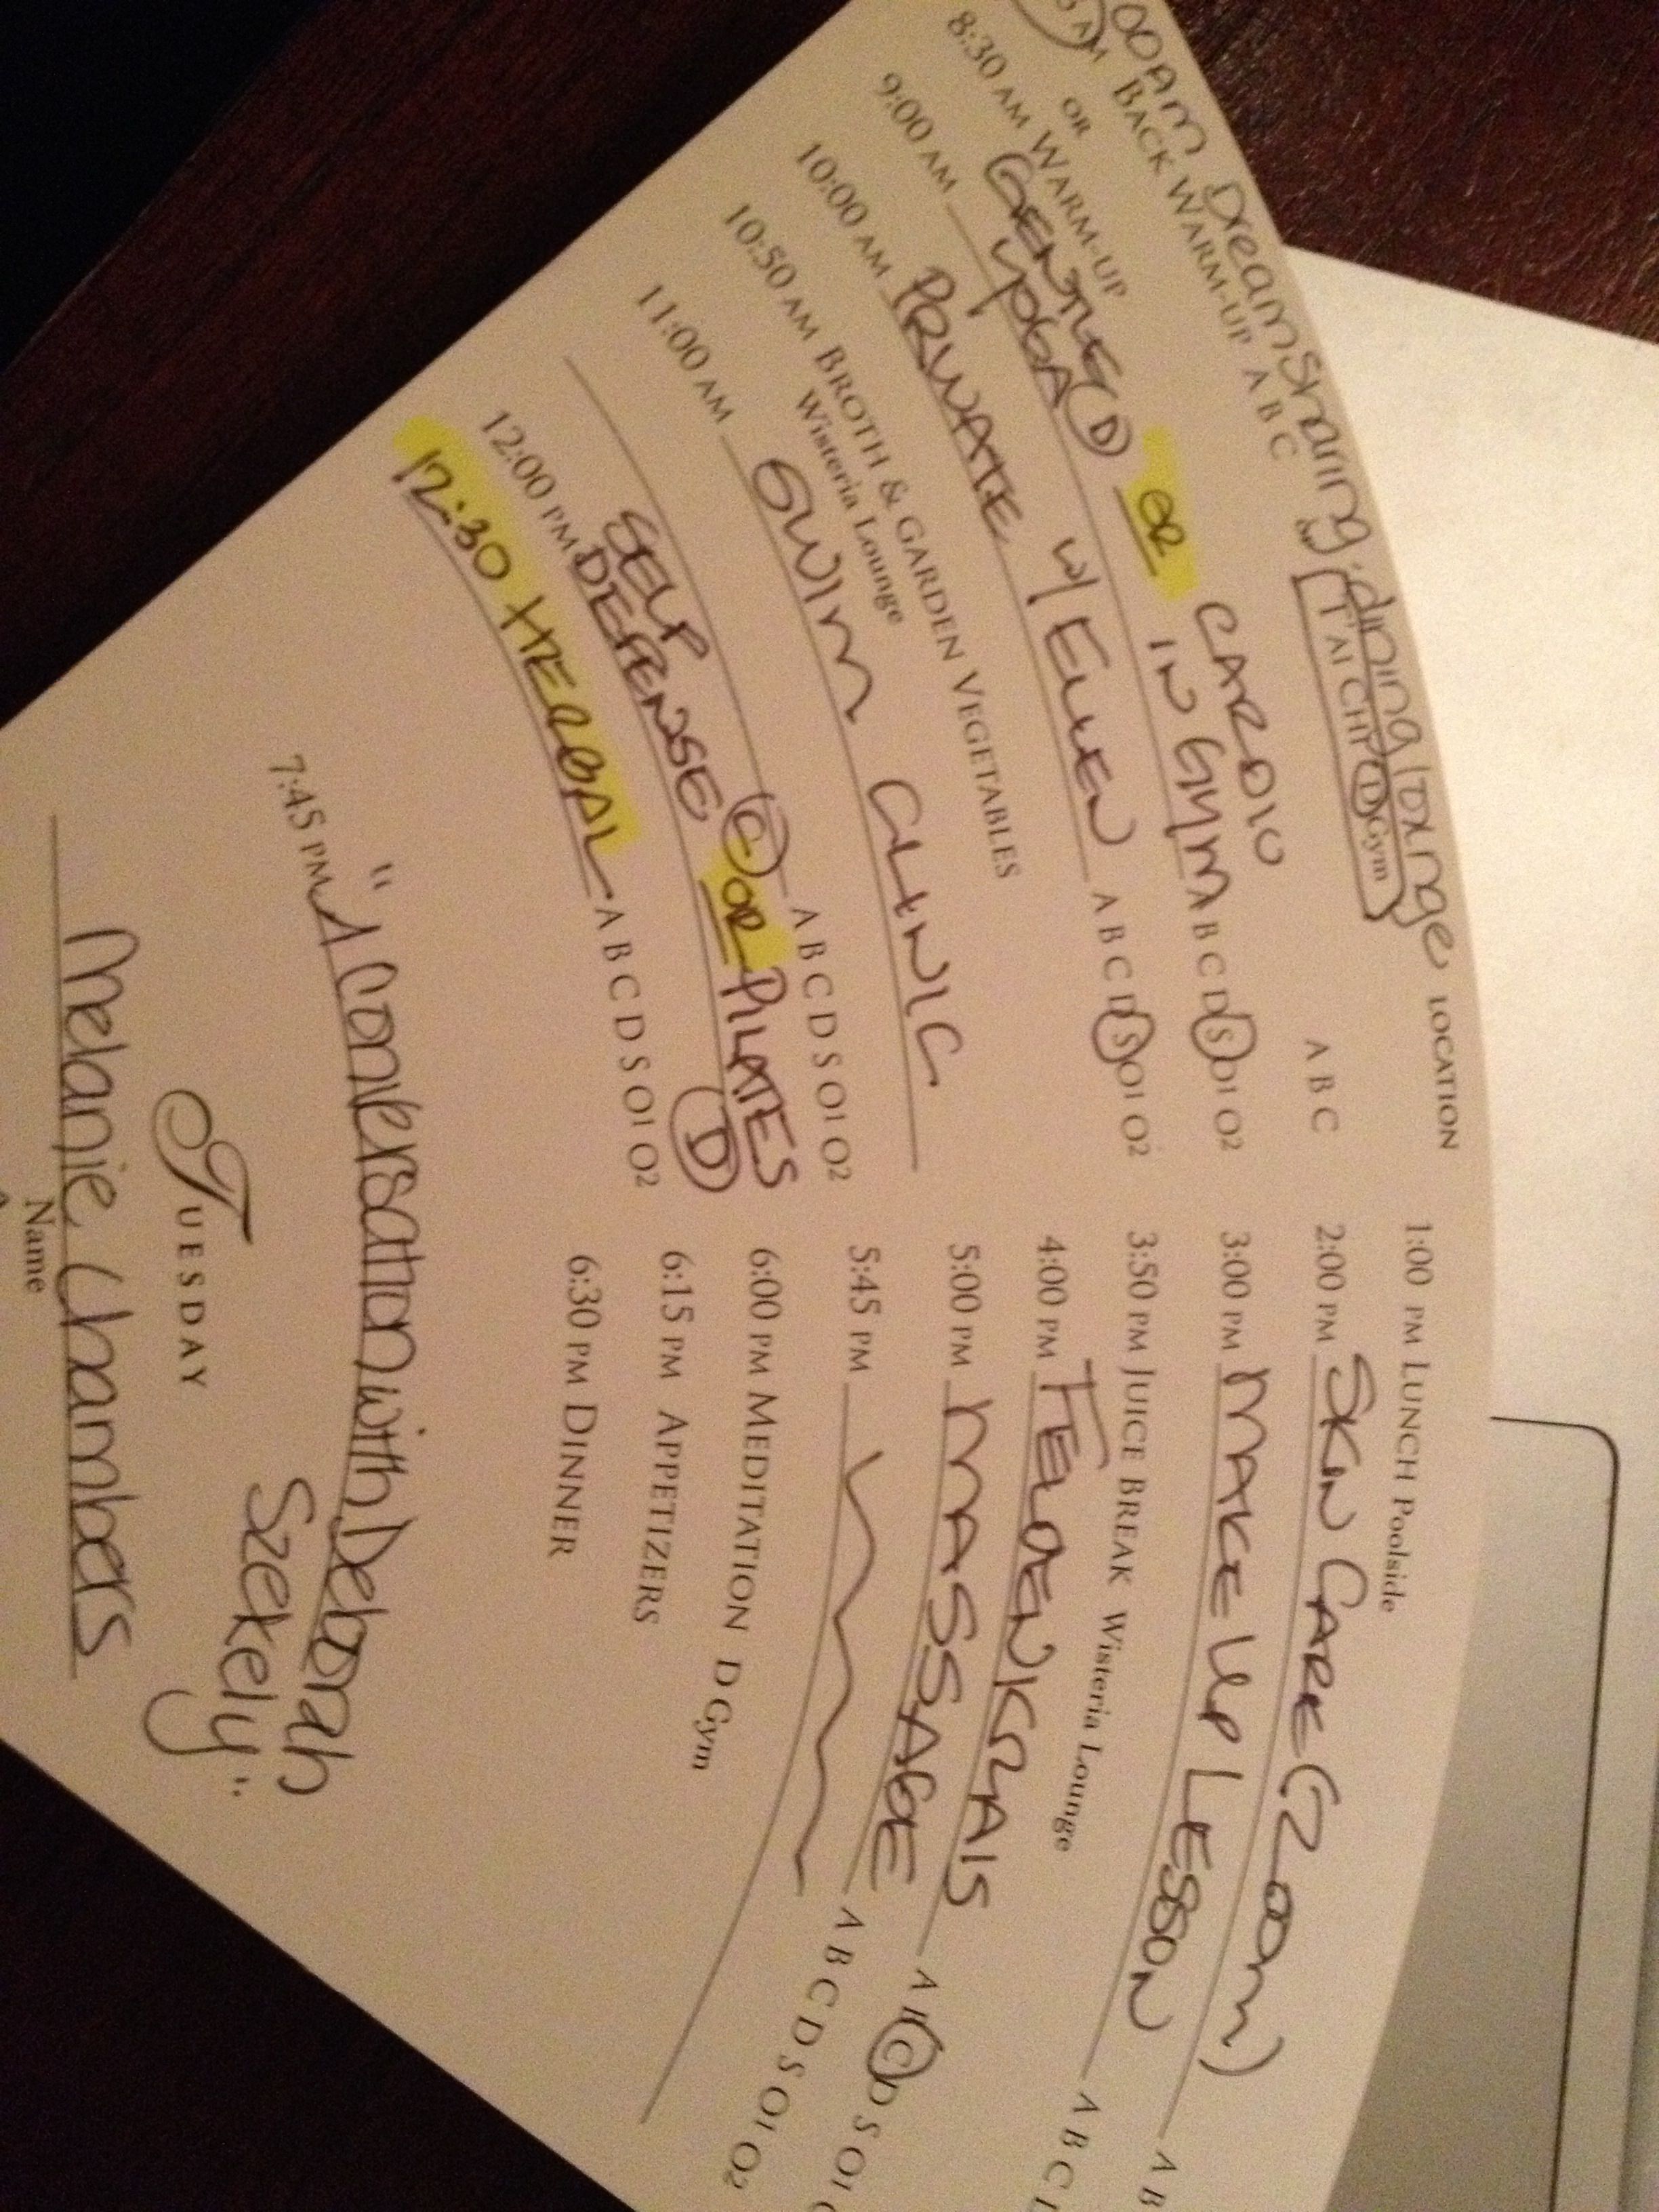 00am Dreamsharing. dining lounge
AM BACK WARM-UP A B C
TAI CHI D Gym
A B C
LOCATION
OR
8:30 AM WARM-UP
9:00 AM GENTLE YOGA (D) OR CARDIO IN GYM A B C D S O1 O2
10:00 AM PRIVATE W/ ELLEN A B C D S O1 O2
10:50 AM BROTH & GARDEN VEGETABLES
Wisteria Lounge
11:00 AM SWIM CLINIC
A B C D S O1 O2
12:00 PM SELF DEFENSE (C) OR PILATES (D)
12:30 HERBAL A B C D S O1 O2
1:00 PM LUNCH Poolside
2:00 PM SKIN CARE (ROOM) A B
3:00 PM MAKE UP LESSON A B C
3:50 PM JUICE BREAK Wisteria Lounge
4:00 PM FELDENKRAIS A B C D S O1
5:00 PM MASSAGE A B C D S O1 O2
5:45 PM
6:00 PM MEDITATION D Gym
6:15 PM APPETIZERS
6:30 PM DINNER
7:45 PM "A Conversation with Deborah
Szekely"
TUESDAY
Melanie Chambers
Name